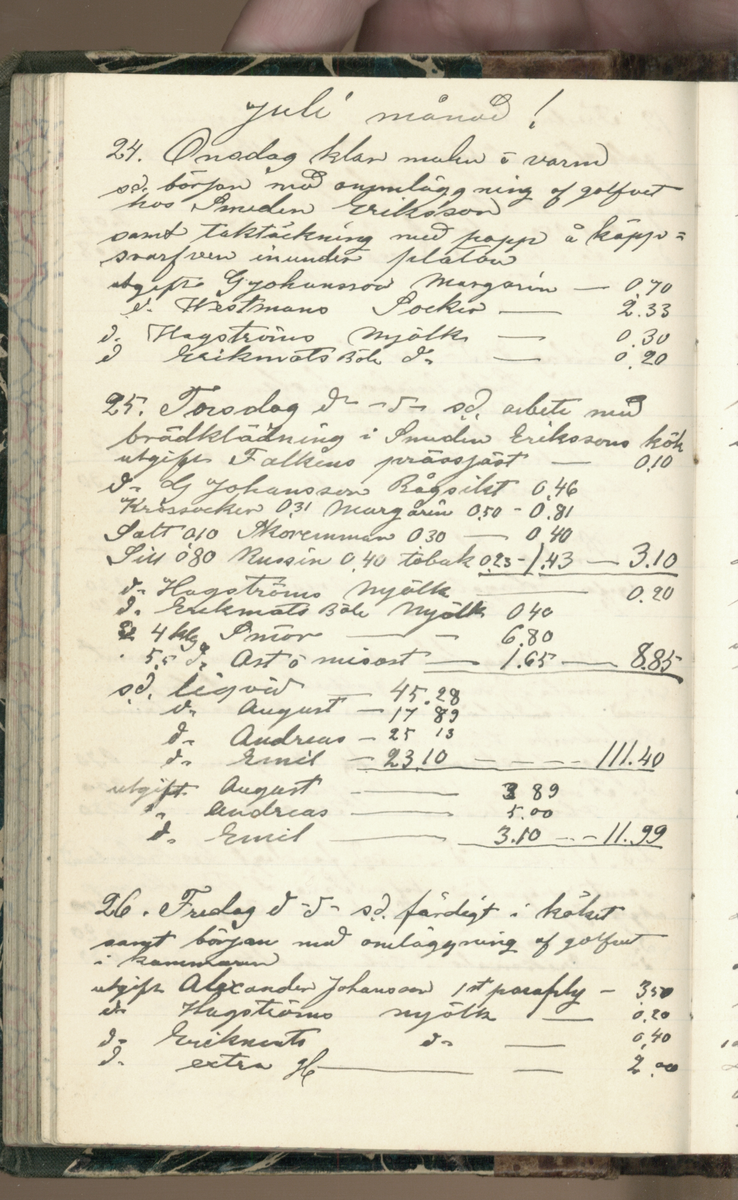 Juli månad!
24. Onsdag klar mulen o varm
sd. början med omläggning af golfvet
hos Smeden Eriksson
samt taktäckning med papp å käpp=
svarfven inunder platån
utgift G Johansson Margarin — 0,70
d. Westmans Socker — 2.33
d. Hagströms Mjölk — 0.30
d Erikmats Böle d. — 0,20
25. Torsdag d- -d- sd. arbete med
brädklädning i Smeden Erikssons kök
utgift Falkens prässjäst — 0,10
d. G Johansson Rågsikt 0,46
Krossocker 0,31 Margarin 0,50 - 0.81
Salt 0,10 Skoremmar 0 30 — 0,40
Sill 0,80 Russin 0,40 tobak 0,23 - 1.43 — 3.10
d. Hagströms Mjölk — 0.20
d. Erikmats Böle Mjölk 0 40
4 kg Smör — 6.80
5,5 d. Ost o misost — 1.65 — 8.85
sd. liqvid — 45.28
d. August — 17 89
d. Andreas — 25 13
d. Emil — 23.10 - - - - 111.40
utgift August — 3 89
" Andreas — 5.00
d. Emil — 3.10 - - - 11.99
26. Fredag d -d- sd. färdigt i köket
samt början med omläggning af golfvet
i kammaren
utgift Alexander Johansson 1 st paraply — 3,50
d. Hagströms mjölk — 0,20
d. Erikmats d. — 0,40
d. extra — 2.00